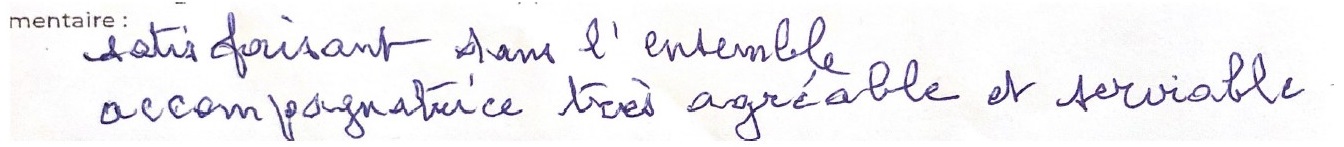 mentaire :
satisfaisant dans l'ensemble
accompagnatrice très agréable et serviable